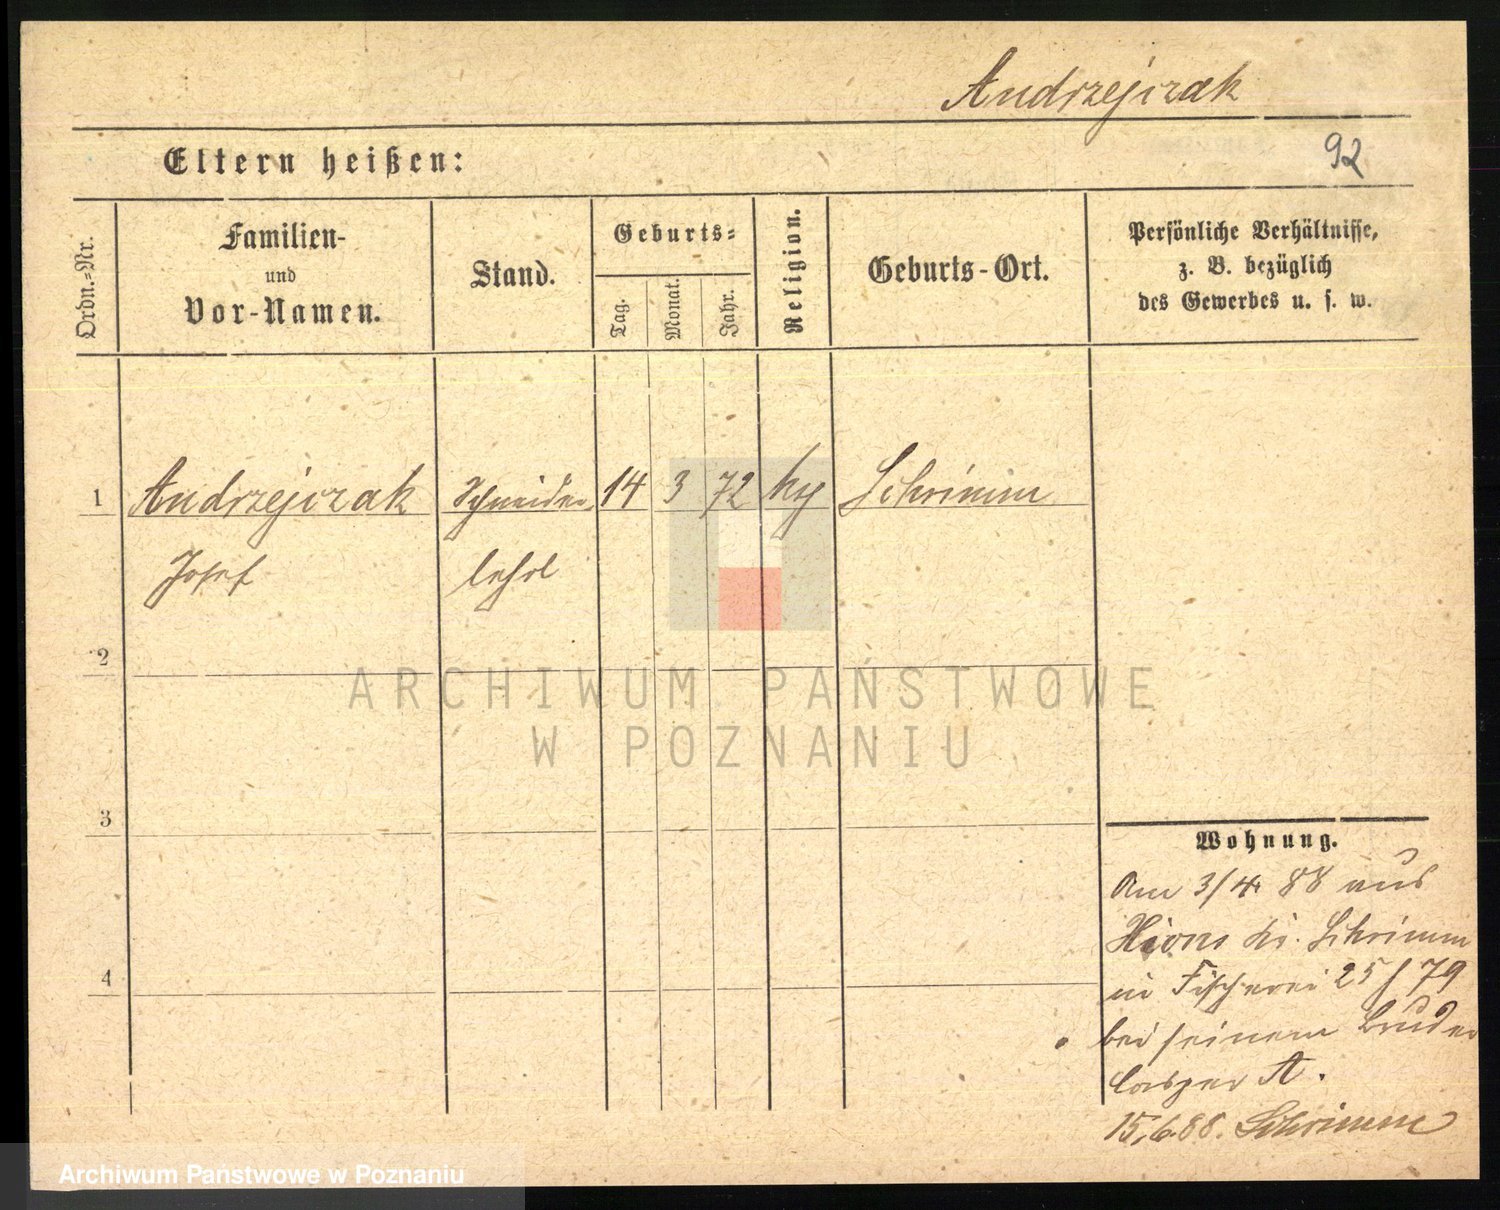 Andrzejczak
92
Eltern heißen:
Ordn.-Nr.
Familien-
und
Vor-Namen.
Stand.
Geburts-
Tag.
Monat.
Jahr.
Religion.
Geburts-Ort.
Persönliche Verhältnisse,
z. B. bezüglich
des Gewerbes u. s. w.
1 Andrzejczak Schneider 14 3 72 Schrimm
Josef lehrl
2
3
4
ARCHIWUM PAŃSTWOWE
W POZNANIU
Wohnung.
Am 3/4 88 aus
Kr. Schrimm
in Fischerei 25 / 79
bei seinem Bruder
A.
15.6.88. Schrimm
Archiwum Państwowe w Poznaniu